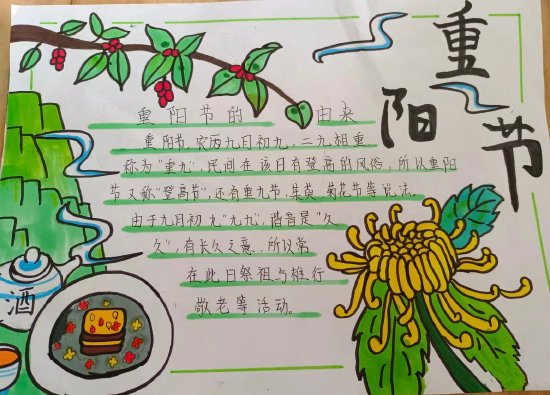 重阳节
重阳节的由来
重阳节,农历九月初九,二九相重,
称为"重九",民间在该日有登高的风俗,所以重阳
节又称"登高节",还有重九节、茱萸、菊花节等说法。
由于九月初九"九九",谐音是"久
久",有长久之意,所以常
在此日祭祖与推行
敬老等活动。
酒